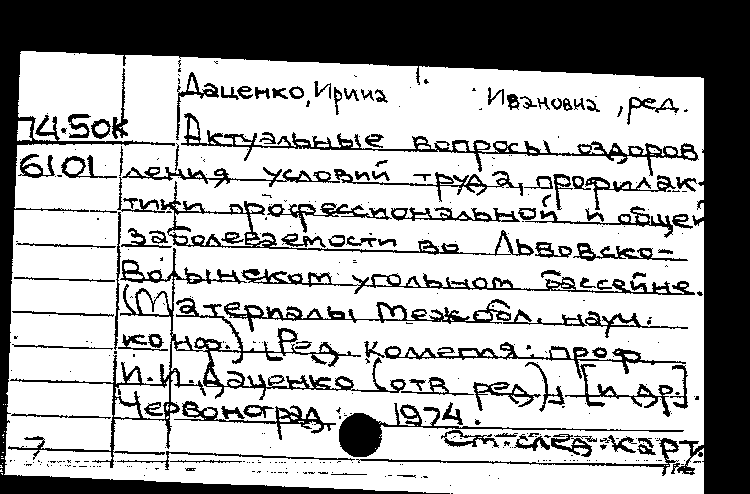 Даценко, Ирина Ивановна, ред.
74.50к Актуальные вопросы оздоров-
6101 ления условий труда, профилак-
тики профессиональной и общей
заболеваемости во Львовско-
Волынском угольном бассейне.
(Материалы межобл. науч.
конф.). [Ред. коллегия: проф.
И.И. Даценко (отв ред.), [и др].
Червоноград, 1974.
См. след. карт.
7